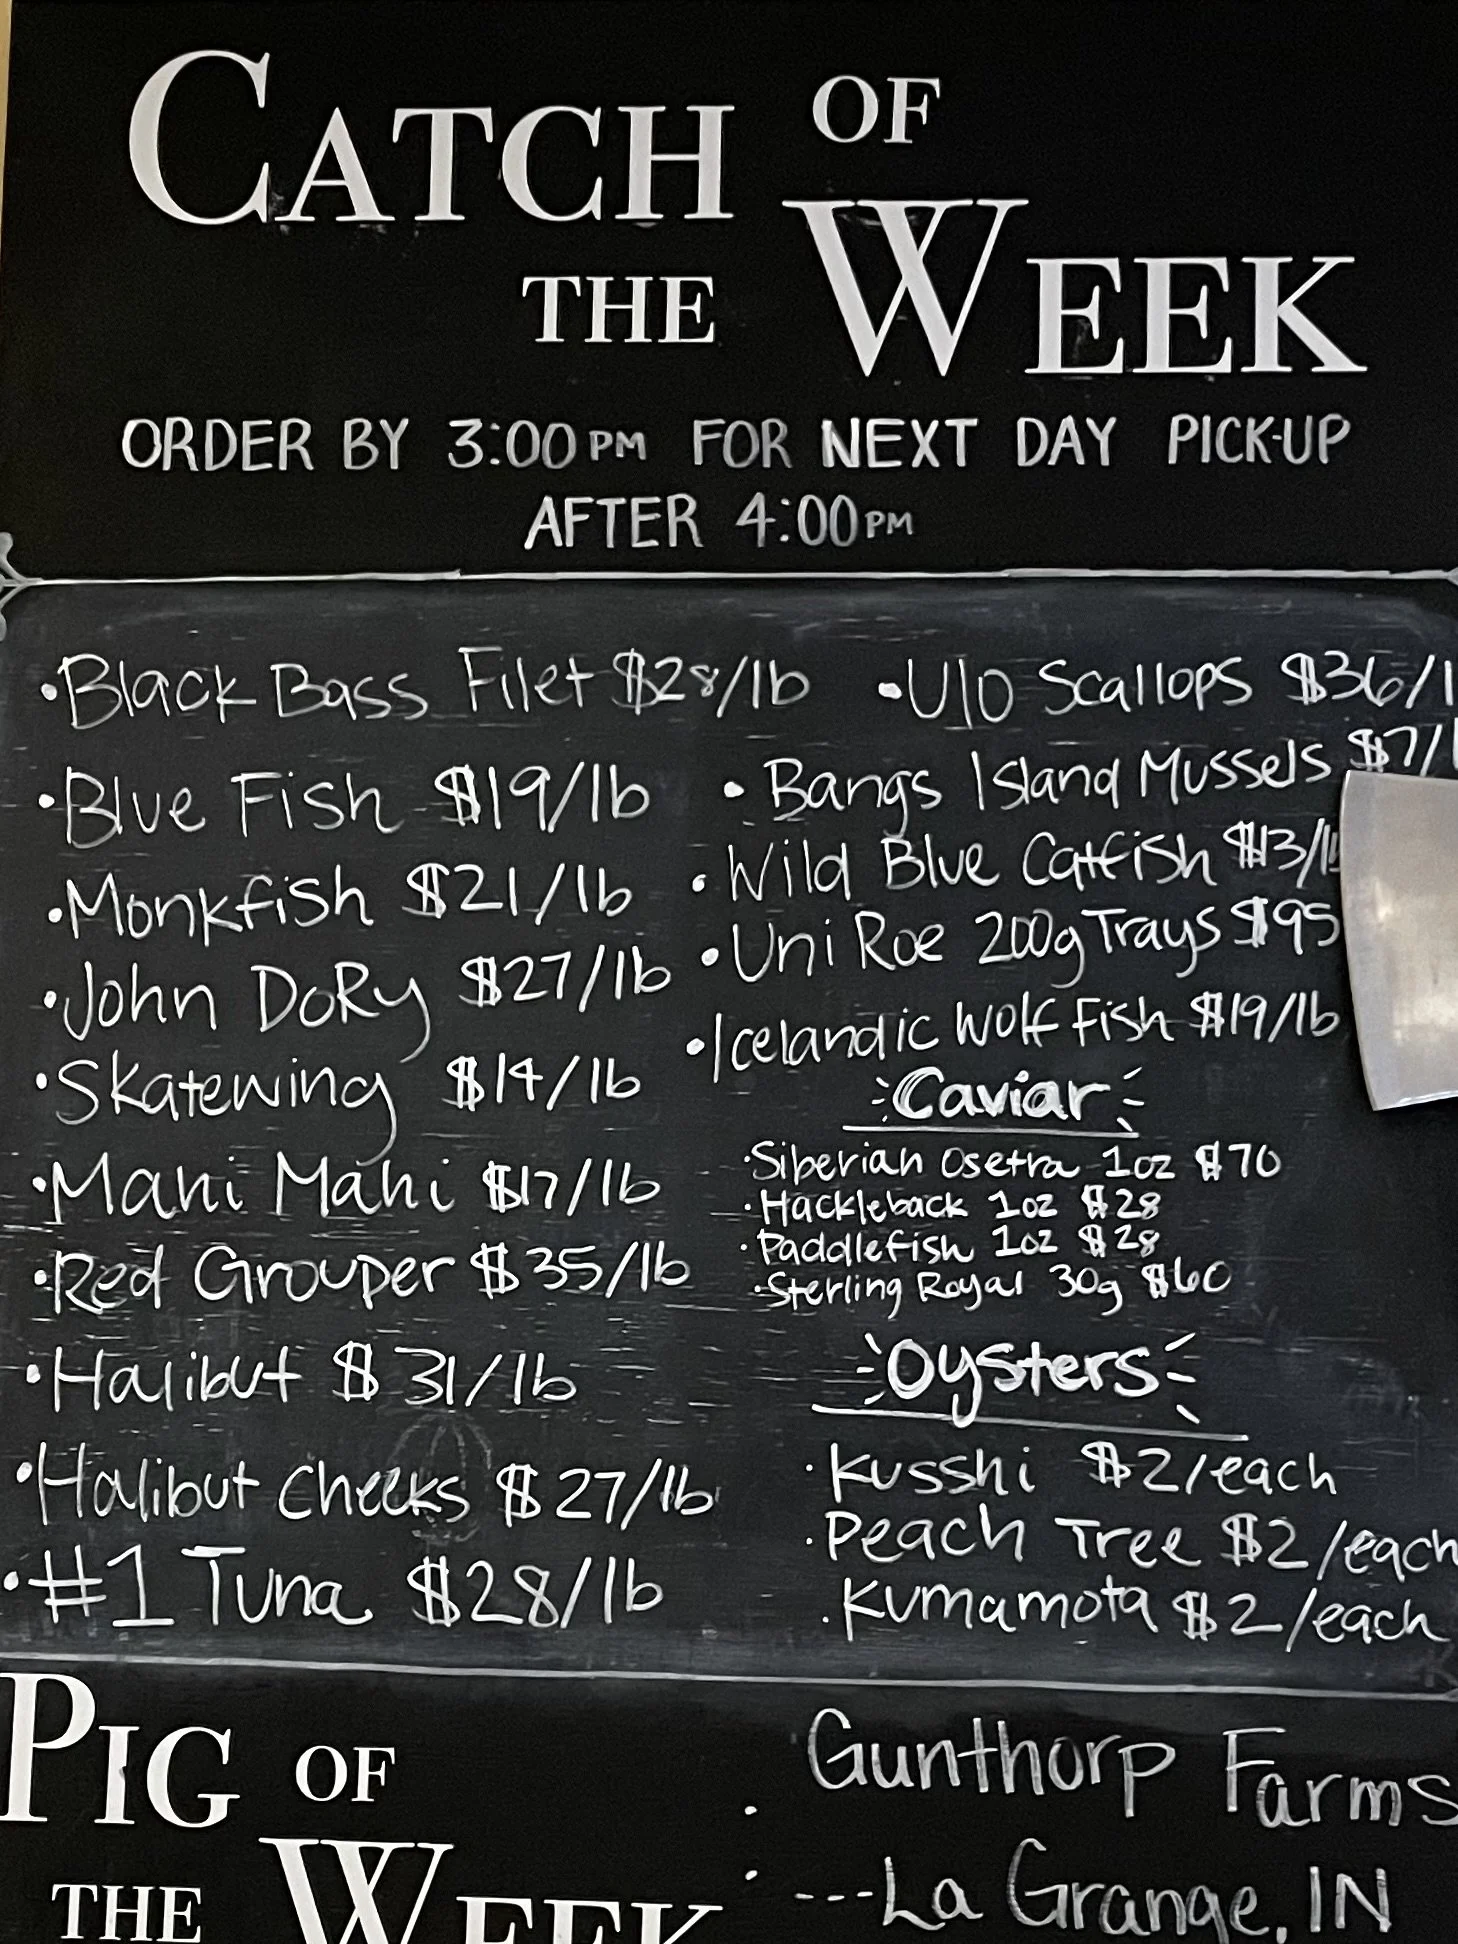 CATCH OF
THE WEEK
ORDER BY 3:00PM FOR NEXT DAY PICK-UP
AFTER 4:00PM
•Black Bass Filet $28/lb
•Blue Fish $19/lb
•Monkfish $21/lb
•John DoRy $27/lb
•Skatewing $14/lb
•Mahi Mahi $17/lb
•Red Grouper $35/lb
•Halibut $31/lb
•Halibut Cheeks $27/lb
•#1 Tuna $28/lb
•U10 Scallops $36/l
•Bangs Island Mussels $7/l
•Wild Blue Catfish $13/lb
•Uni Roe 200g Trays $95
•Icelandic Wolf Fish $19/lb
Caviar
•Siberian Osetra 1oz $70
•Hackleback 1oz $28
•Paddlefish 1oz $28
•Sterling Royal 30g $60
Oysters
•Kusshi $2/each
•Peach Tree $2/each
•Kumamota $2/each
PIG OF
THE WEEK
• Gunthorp Farms
• ---La Grange, IN